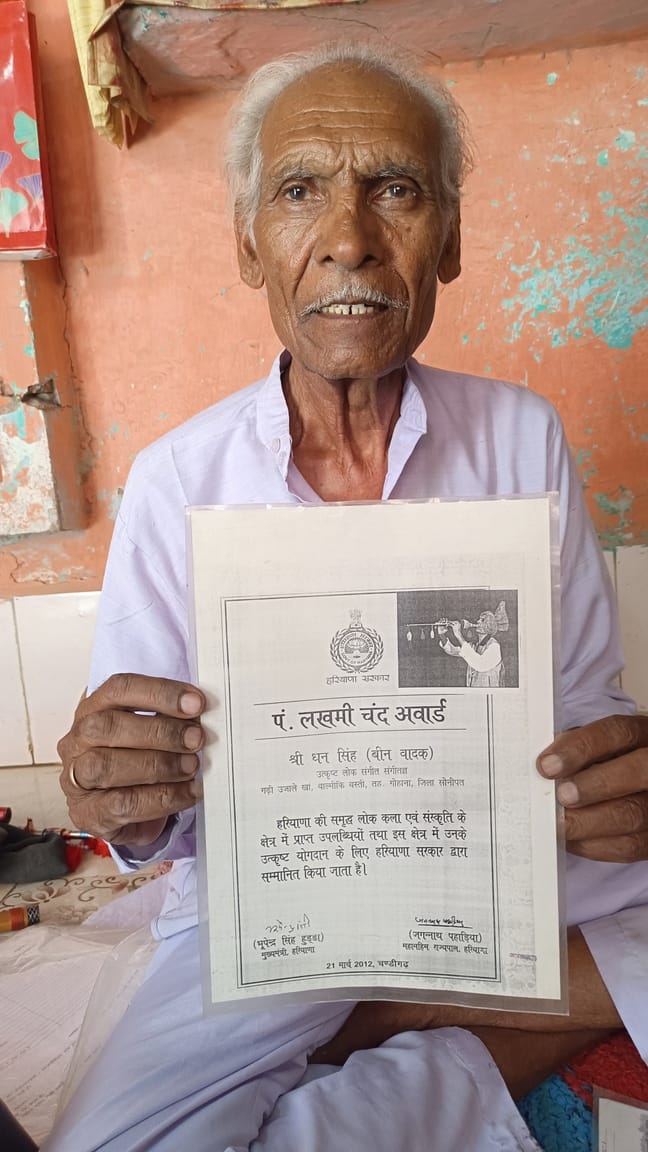 हरियाणा सरकार
पं. लखमी चंद अवार्ड
श्री धन सिंह (बीन वादक)
उत्कृष्ट लोक संगीत संगीतज्ञ
गढ़ी उजाले खां, वाल्मीकि बस्ती, तह. गोहाना, जिला सोनीपत
हरियाणा की समृद्ध लोक कला एवं संस्कृति के
क्षेत्र में प्राप्त उपलब्धियों तथा इस क्षेत्र में उनके
उत्कृष्ट योगदान के लिए हरियाणा सरकार द्वारा
सम्मानित किया जाता है।
(भूपेन्द्र सिंह हुड्डा)
मुख्यमंत्री, हरियाणा
(जगन्नाथ पहाड़िया)
महामहिम राज्यपाल, हरियाणा
21 मार्च 2012, चण्डीगढ़